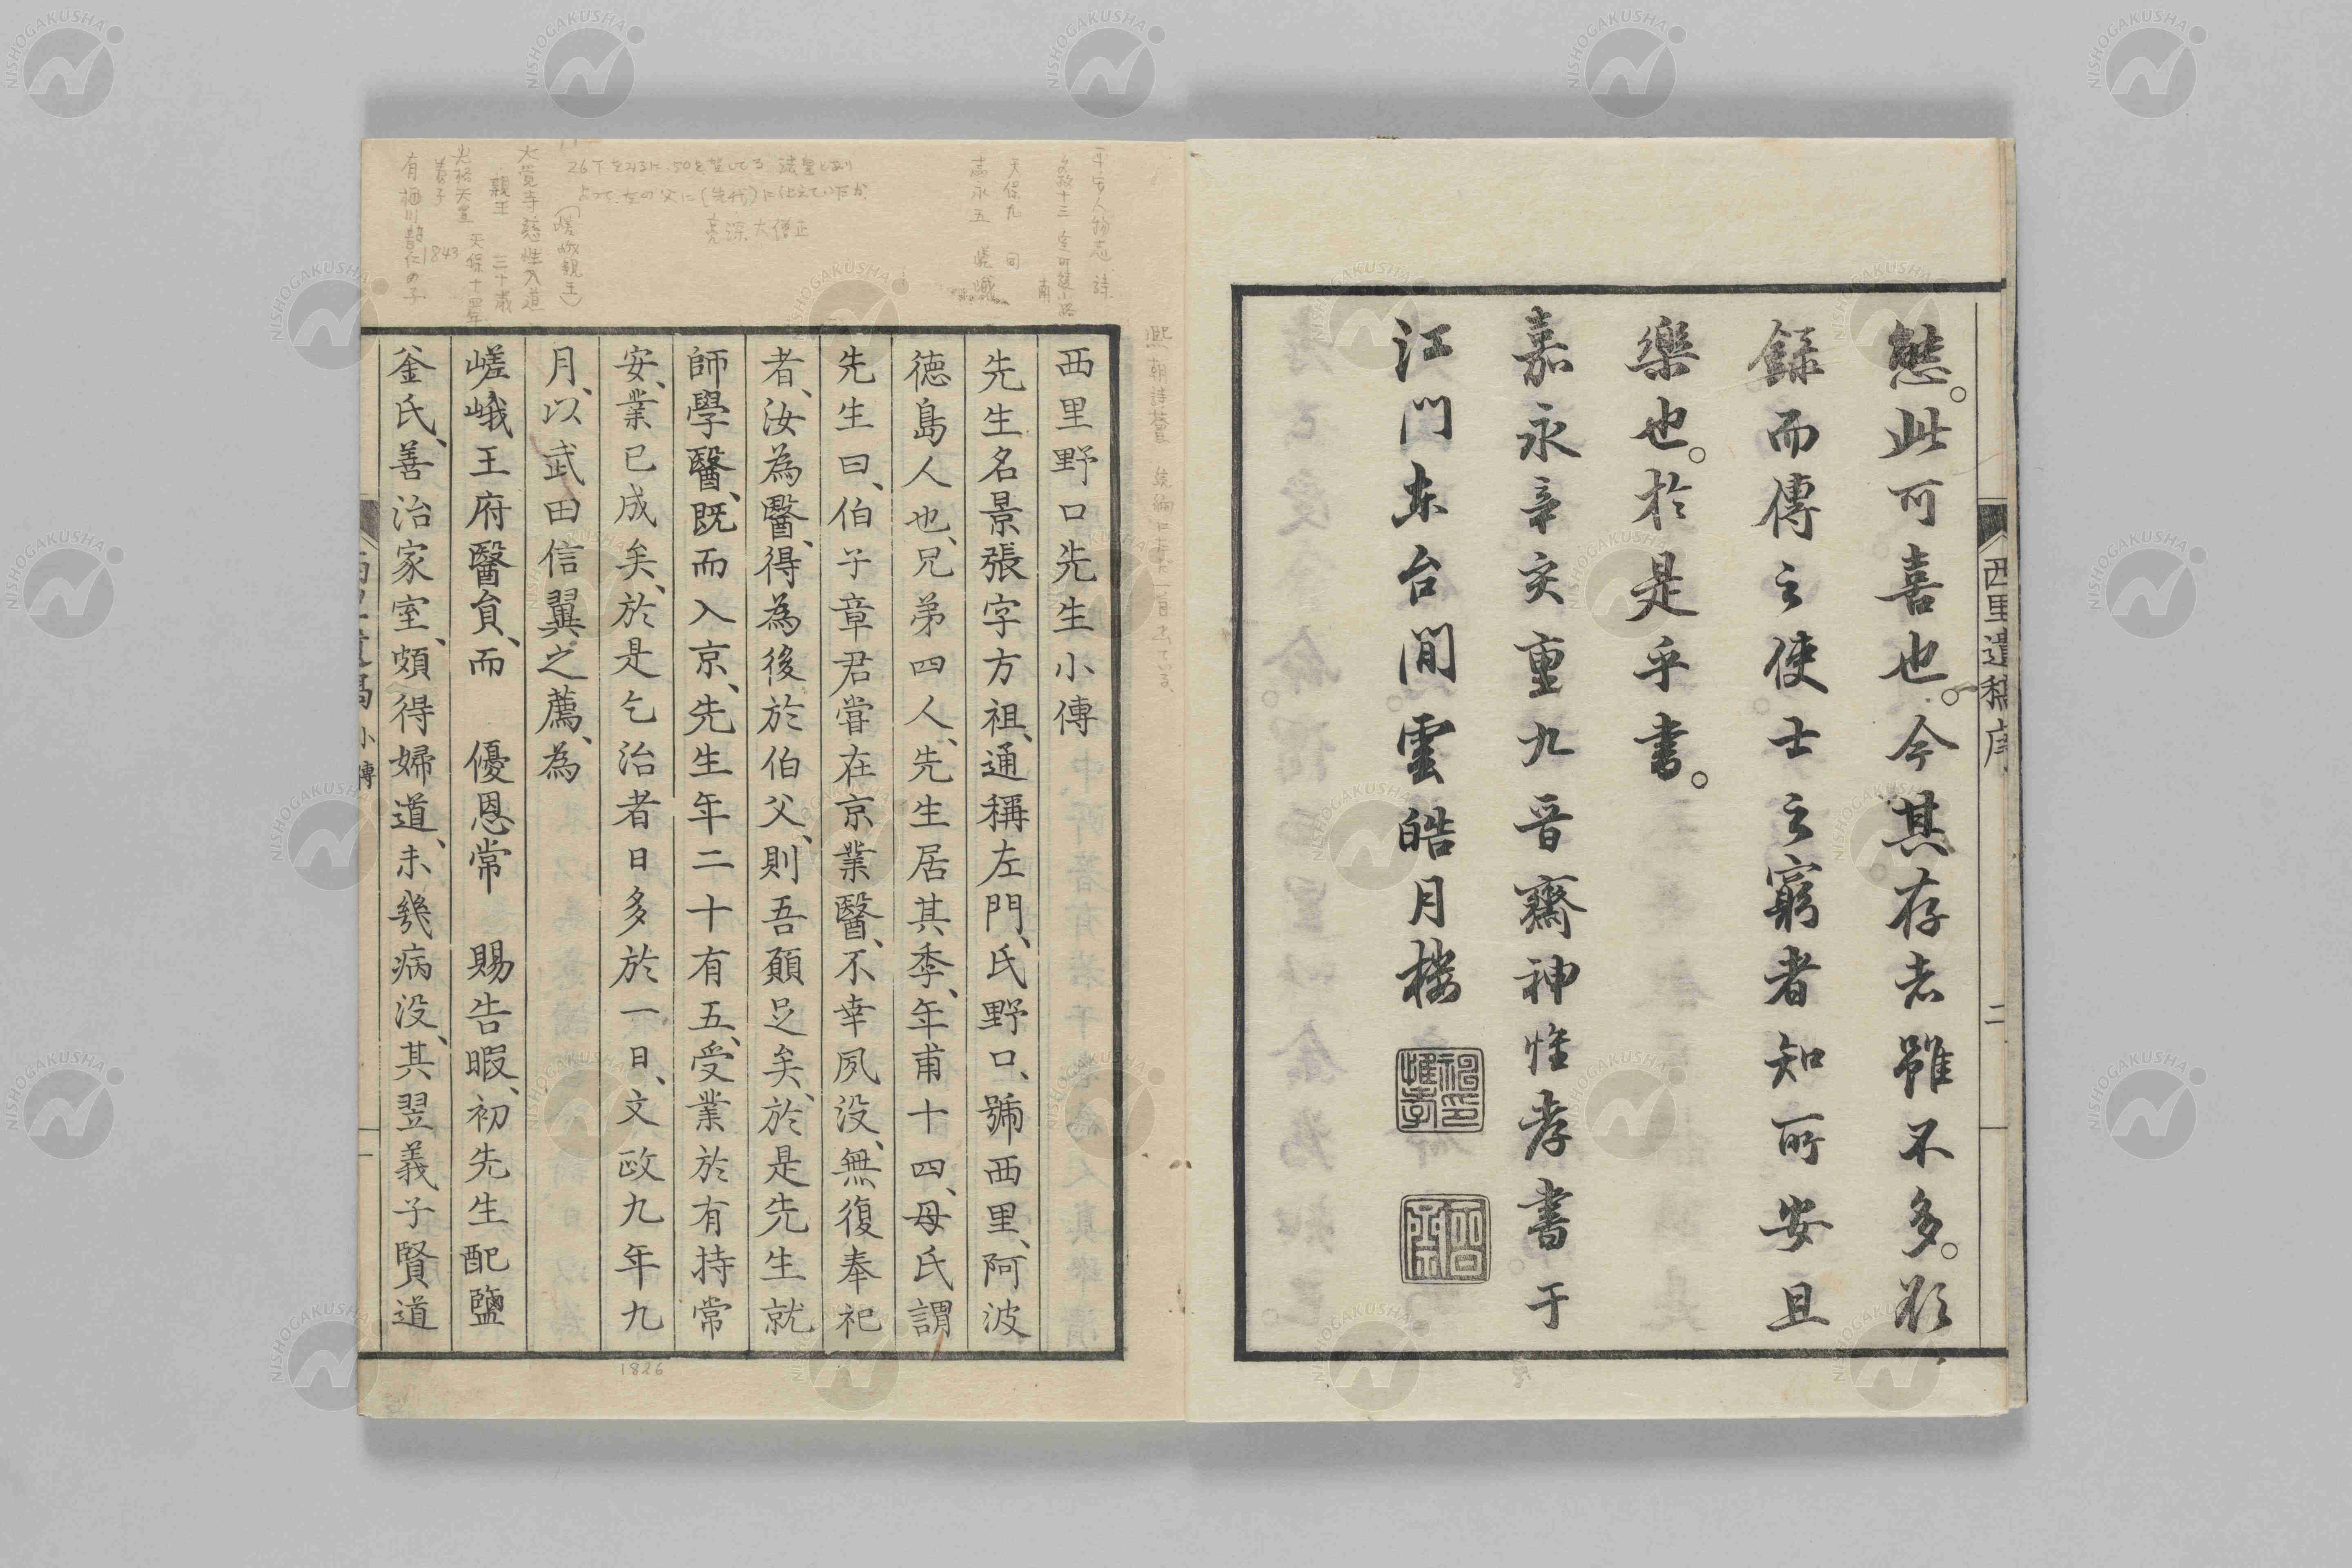 態。此可喜也。今其存者雖不多。欲
録而傳之使士之窮者知所安且
樂也。於是乎書。
嘉永辛亥重九晋齋神惟孝書于
江門東台閒雲皓月楼
西里遺稿序
二
西里野口先生小傳
先生名景張字方祖、通稱左門、氏野口、號西里、阿波
徳島人也、兄弟四人、先生居其季、年甫十四、母氏謂
先生曰、伯子章君嘗在京業醫、不幸夙没、無復奉祀
者、汝為醫、得為後於伯父、則吾願足矣、於是先生就
師學醫、既而入京、先生年二十有五、受業於有持常
安、業已成矣、於是乞治者日多於一日、文政九年九
月、以武田信翼之薦、為
嵯峨王府醫員、而 優恩常 賜告暇、初先生配鹽
釜氏、善治家室、頗得婦道、未幾病没、其翌義子賢道
小傳
一
平安人物志 詩
文政十三
天保九 同
嘉永五
亮深大僧正
(嵯峨親王)
大覚寺慈性入道
親王 三十歳
光格天皇 天保十四年
養子 1843
有栖川韶仁の子
1826